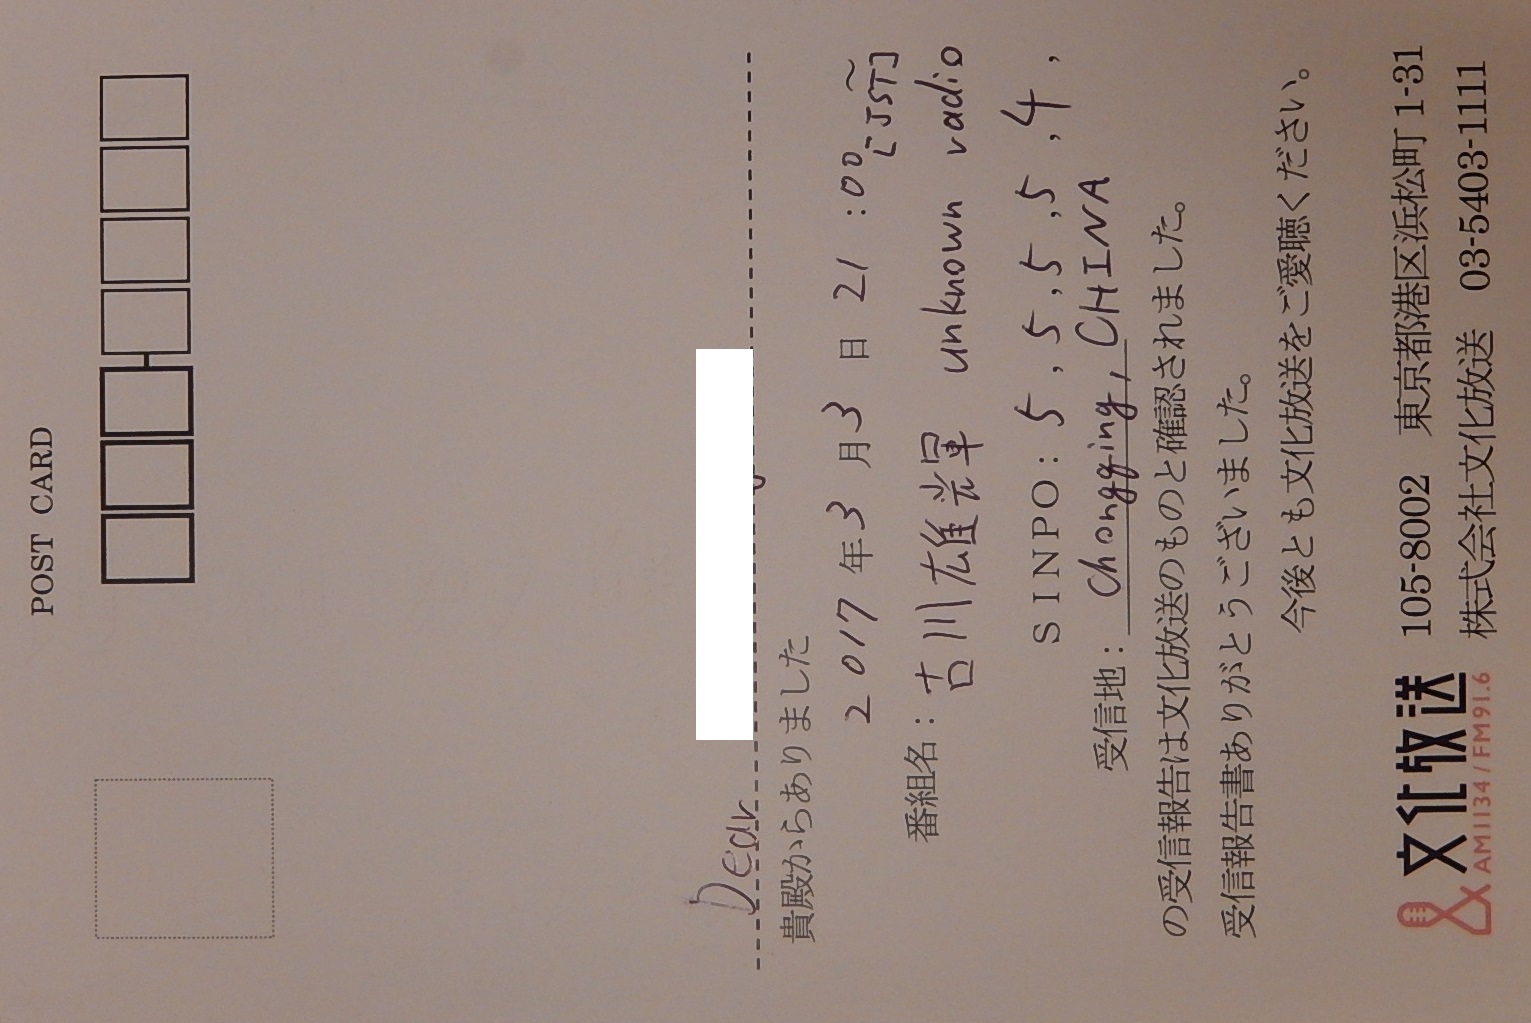 POST CARD
Dear
貴殿からありました
2017年3月3日 21:00～
[JST]
番組名：古川雄輝 unknown radio
SINPO：5,5,5,5,4,
受信地：Chongqing, CHINA
の受信報告は文化放送のものと確認されました。
受信報告書ありがとうございました。
今後とも文化放送をご愛聴ください。
文化放送
AM1134/FM91.6
105-8002 東京都港区浜松町 1-31
株式会社文化放送 03-5403-1111